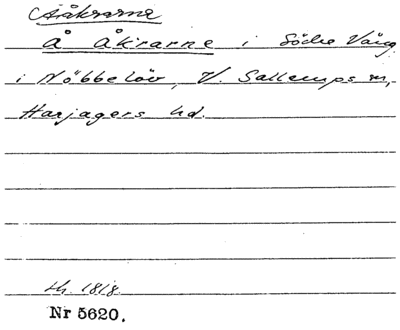 Aåkrarne
Å Åkrarne i Södre Vång
i Nöbbelöv, V. Sallerups sn,
Harjagers hd.
1818.
Nr 5620.